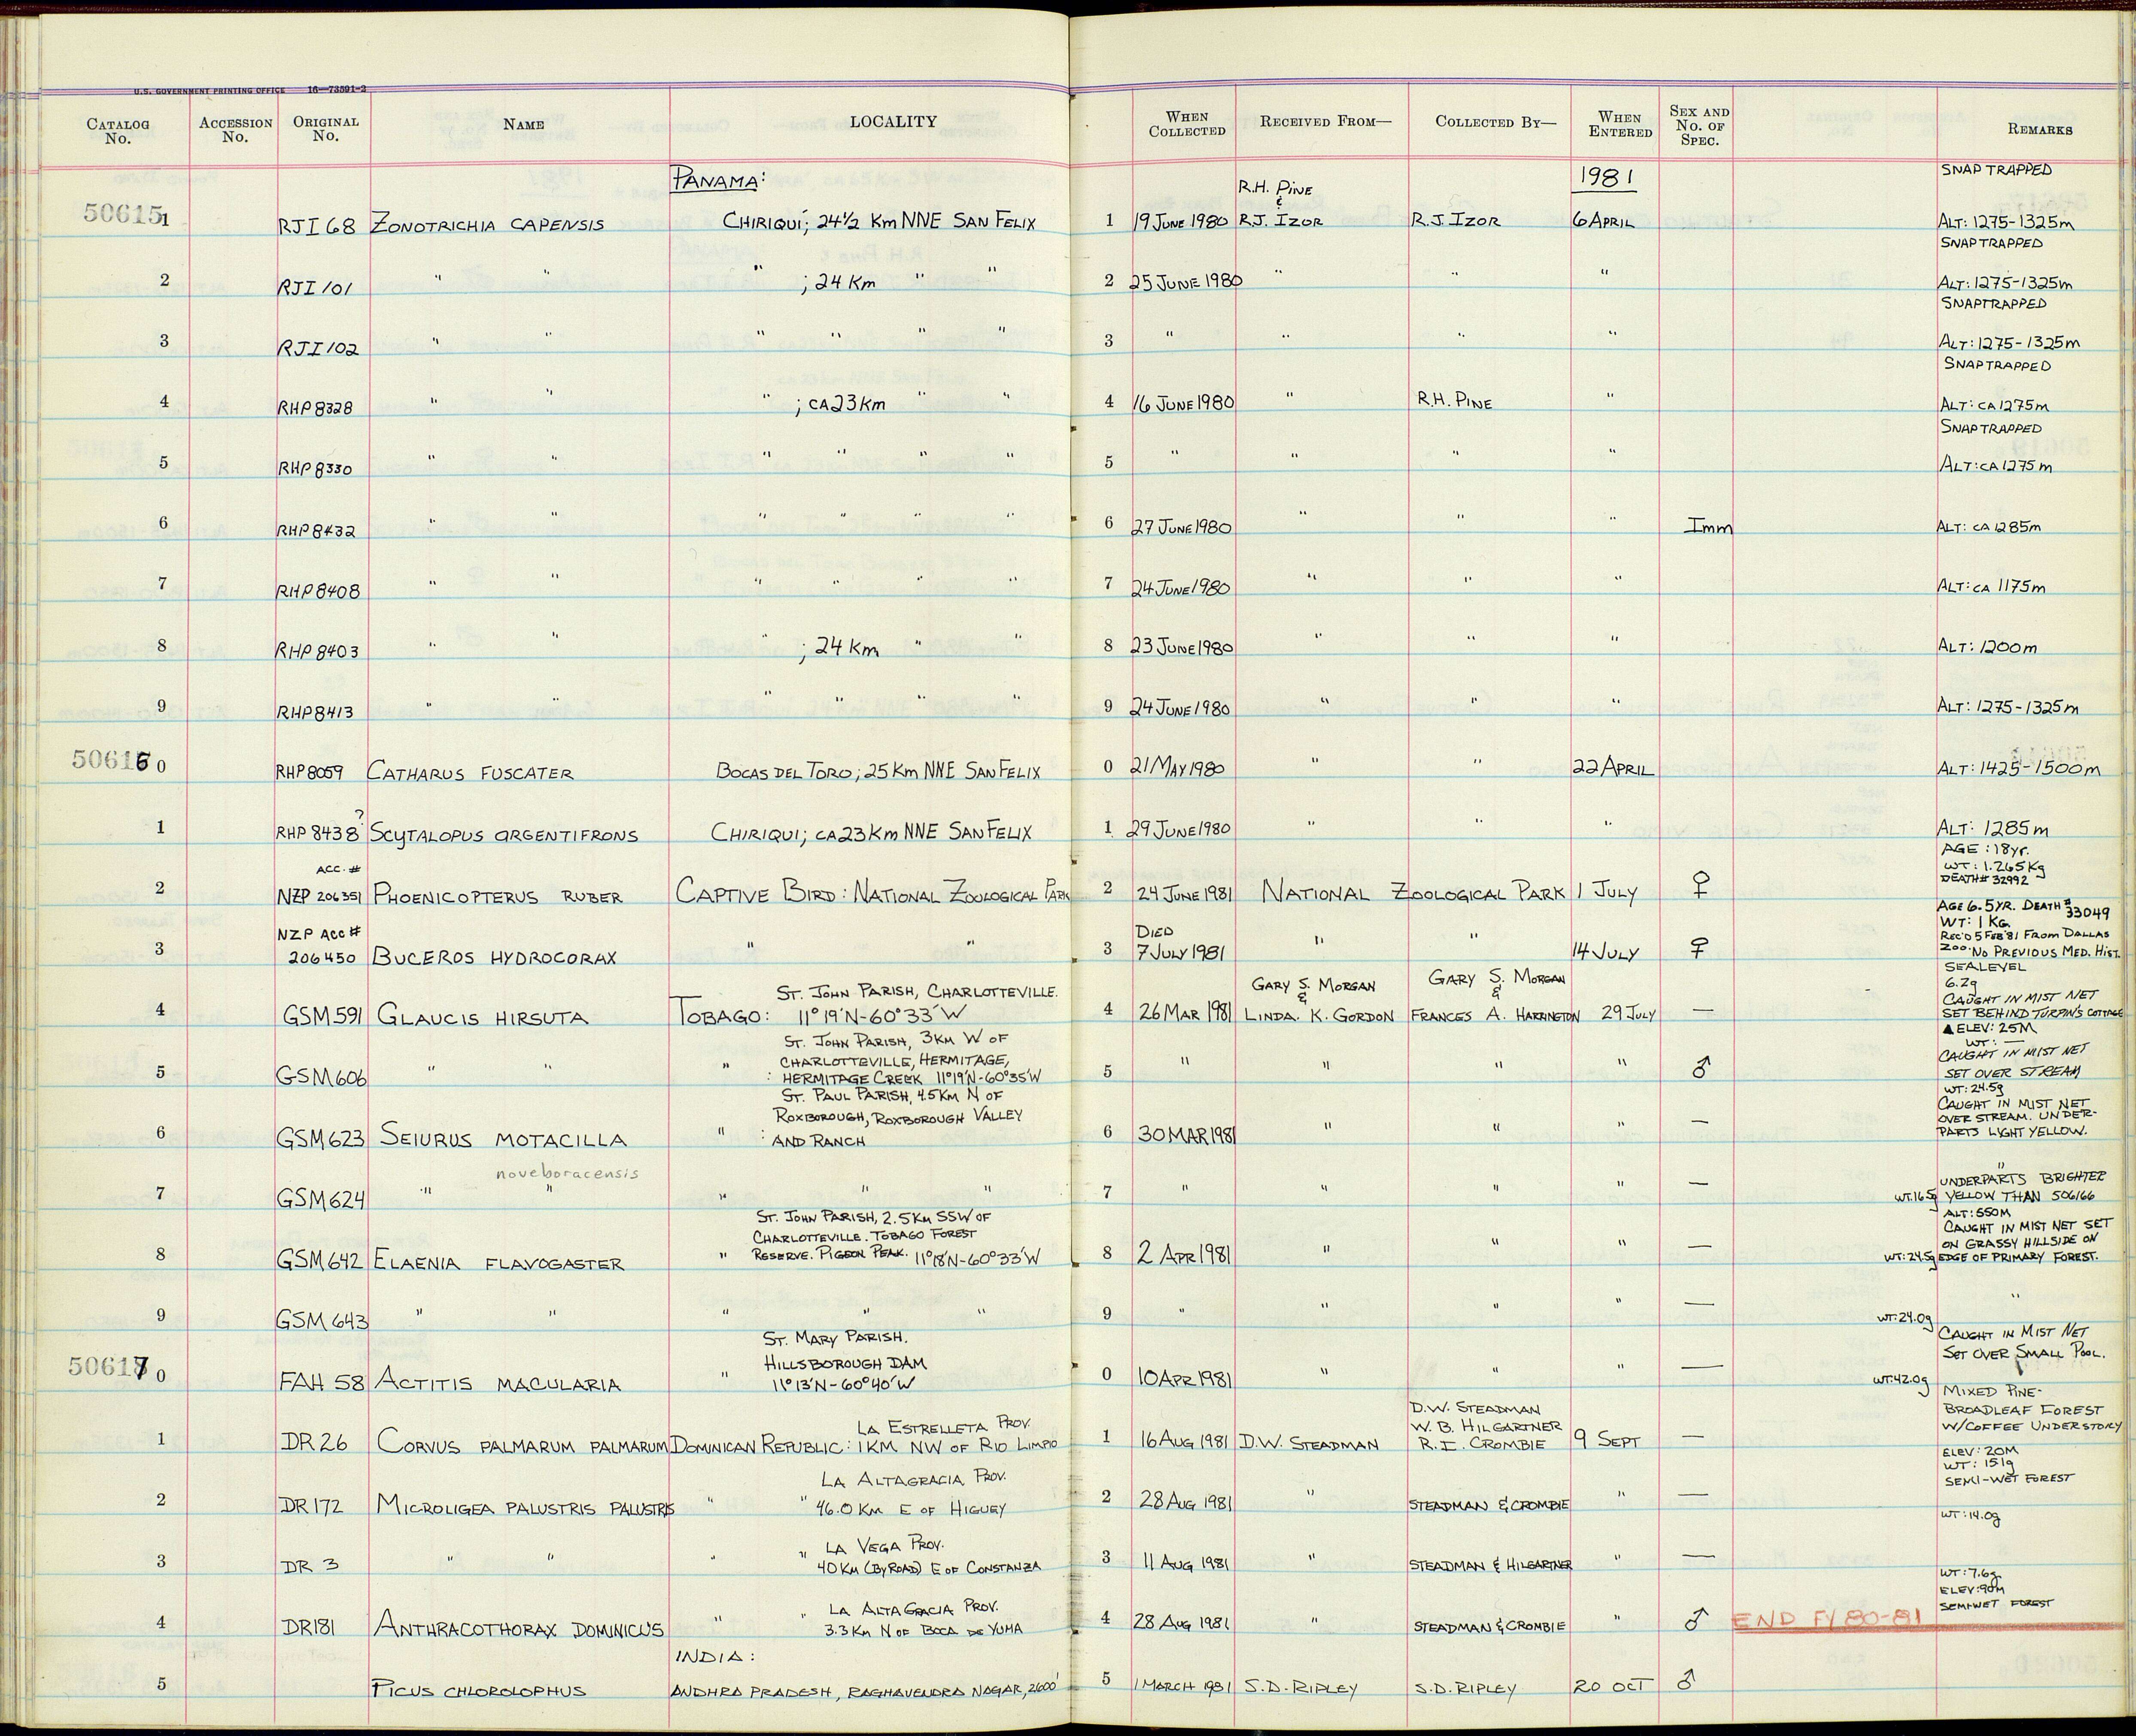 U.S. GOVERNMENT PRINTING OFFICE 16—73591-2
CATALOG No. ACCESSION No. ORIGINAL No. NAME LOCALITY WHEN COLLECTED RECEIVED FROM— COLLECTED BY— WHEN ENTERED SEX AND No. OF SPEC. REMARKS
PANAMA: R.H. PINE & 1981 SNAP TRAPPED
506151 RJI 68 ZONOTRICHIA CAPENSIS CHIRIQUÍ; 24½ KM NNE SAN FELIX 1 19 JUNE 1980 R.J. IZOR R.J. IZOR 6 APRIL ALT: 1275-1325m
SNAP TRAPPED
2 RJI 101 " " " ; 24 KM " " 2 25 JUNE 1980 " " " ALT: 1275-1325m
SNAPTRAPPED
3 RJI 102 " " " " " " 3 " " " " ALT: 1275-1325m
SNAPTRAPPED
4 RHP 8328 " " " ; CA 23 KM " " 4 16 JUNE 1980 " R.H. PINE " ALT: CA 1275m
SNAPTRAPPED
5 RHP 8330 " " " " " " 5 " " " " ALT: CA 1275m
6 RHP 8432 " " " " " " 6 27 JUNE 1980 " " " Imm ALT: CA 1285m
7 RHP 8408 " " " " " " 7 24 JUNE 1980 " " " ALT: CA 1175m
8 RHP 8403 " " " ; 24 KM " " 8 23 JUNE 1980 " " " ALT: 1200m
9 RHP 8413 " " " " " " 9 24 JUNE 1980 " " " ALT: 1275-1325m
506160 RHP 8059 CATHARUS FUSCATER BOCAS DEL TORO; 25 KM NNE SAN FELIX 0 21 MAY 1980 " " 22 APRIL ALT: 1425-1500m
?
1 RHP 8438 SCYTALOPUS ARGENTIFRONS CHIRIQUI; CA 23 KM NNE SAN FELIX 1 29 JUNE 1980 " " " ALT: 1285m
ACC. # AGE: 18 yr.
WT: 1.265 Kg
2 NZP 206351 PHOENICOPTERUS RUBER CAPTIVE BIRD: NATIONAL ZOOLOGICAL PARK 2 24 JUNE 1981 NATIONAL ZOOLOGICAL PARK 1 JULY ♀ DEATH# 32992
AGE 6.5 YR. DEATH # 33049
NZP ACC# DIED WT: 1 KG.
REC'D 5 FEB '81 FROM DALLAS
3 206450 BUCEROS HYDROCORAX " " 3 7 JULY 1981 " " 14 JULY ♀ ZOO. NO PREVIOUS MED. HIST.
SEALEVEL
6.2g
ST. JOHN PARISH, CHARLOTTEVILLE. GARY S. MORGAN & GARY S. MORGAN & CAUGHT IN MIST NET
4 GSM 591 GLAUCIS HIRSUTA TOBAGO: 11°19'N-60°33'W 4 26 MAR 1981 LINDA. K. GORDON FRANCES A. HARRINGTON 29 JULY — SET BEHIND TURPIN'S COTTAGE
ST. JOHN PARISH, 3KM W OF ▲ ELEV: 25M
WT: —
CHARLOTTEVILLE, HERMITAGE, CAUGHT IN MIST NET
5 GSM 606 " " " : HERMITAGE CREEK 11°19'N-60°35'W 5 " " " " ♂ SET OVER STREAM
ST. PAUL PARISH, 4.5 KM N OF WT: 24.5g
ROXBOROUGH, ROXBOROUGH VALLEY CAUGHT IN MIST NET
OVER STREAM. UNDER-
6 GSM 623 SEIURUS MOTACILLA " : AND RANCH 6 30 MAR 1981 " " " — PARTS LIGHT YELLOW.
noveboracensis "
UNDERPARTS BRIGHTER
7 GSM 624 " " " " " 7 " " " " — WT. 16.5g YELLOW THAN 506166
ST. JOHN PARISH, 2.5 KM SSW OF ALT: 550M
CHARLOTTEVILLE. TOBAGO FOREST CAUGHT IN MIST NET SET
ON GRASSY HILLSIDE ON
8 GSM 642 ELAENIA FLAVOGASTER " RESERVE. PIGEON PEAK. 11°18'N-60°33'W 8 2 APR 1981 " " " — WT: 24.5g EDGE OF PRIMARY FOREST.
9 GSM 643 " " " " " 9 " " " " — WT: 24.0g "
ST. MARY PARISH. CAUGHT IN MIST NET
HILLSBOROUGH DAM SET OVER SMALL POOL.
506170 FAH 58 ACTITIS MACULARIA " 11°13'N-60°40'W 0 10 APR 1981 " " " — WT: 42.0g
D.W. STEADMAN MIXED PINE-
BROADLEAF FOREST
LA ESTRELLETA PROV. W. B. HILGARTNER W/COFFEE UNDERSTORY
1 DR 26 CORVUS PALMARUM PALMARUM DOMINICAN REPUBLIC: 1KM NW OF RIO LIMPIO 1 16 AUG 1981 D.W. STEADMAN R.I. CROMBIE 9 SEPT —
ELEV: 20M
WT: 15.1g
LA ALTAGRACIA PROV. SEMI-WET FOREST
2 DR 172 MICROLIGEA PALUSTRIS PALUSTRIS " " 46.0 KM E OF HIGUEY 2 28 AUG 1981 " STEADMAN & CROMBIE " —
WT: 14.0g
LA VEGA PROV.
3 DR 3 " " " " 40 KM (BY ROAD) E OF CONSTANZA 3 11 AUG 1981 " STEADMAN & HILGARTNER " —
WT: 7.6g
ELEV: 90M
LA ALTAGRACIA PROV. SEMI-WET FOREST
4 DR181 ANTHRACOTHORAX DOMINICUS " " 3.3 KM N OF BOCA DE YUMA 4 28 AUG 1981 " STEADMAN & CROMBIE " ♂ END FY 80-81
INDIA:
5 PICUS CHLOROLOPHUS ANDHRA PRADESH, RAGHAVENDRA NAGAR, 2600' 5 1 MARCH 1981 S.D. RIPLEY S.D. RIPLEY 20 OCT ♂